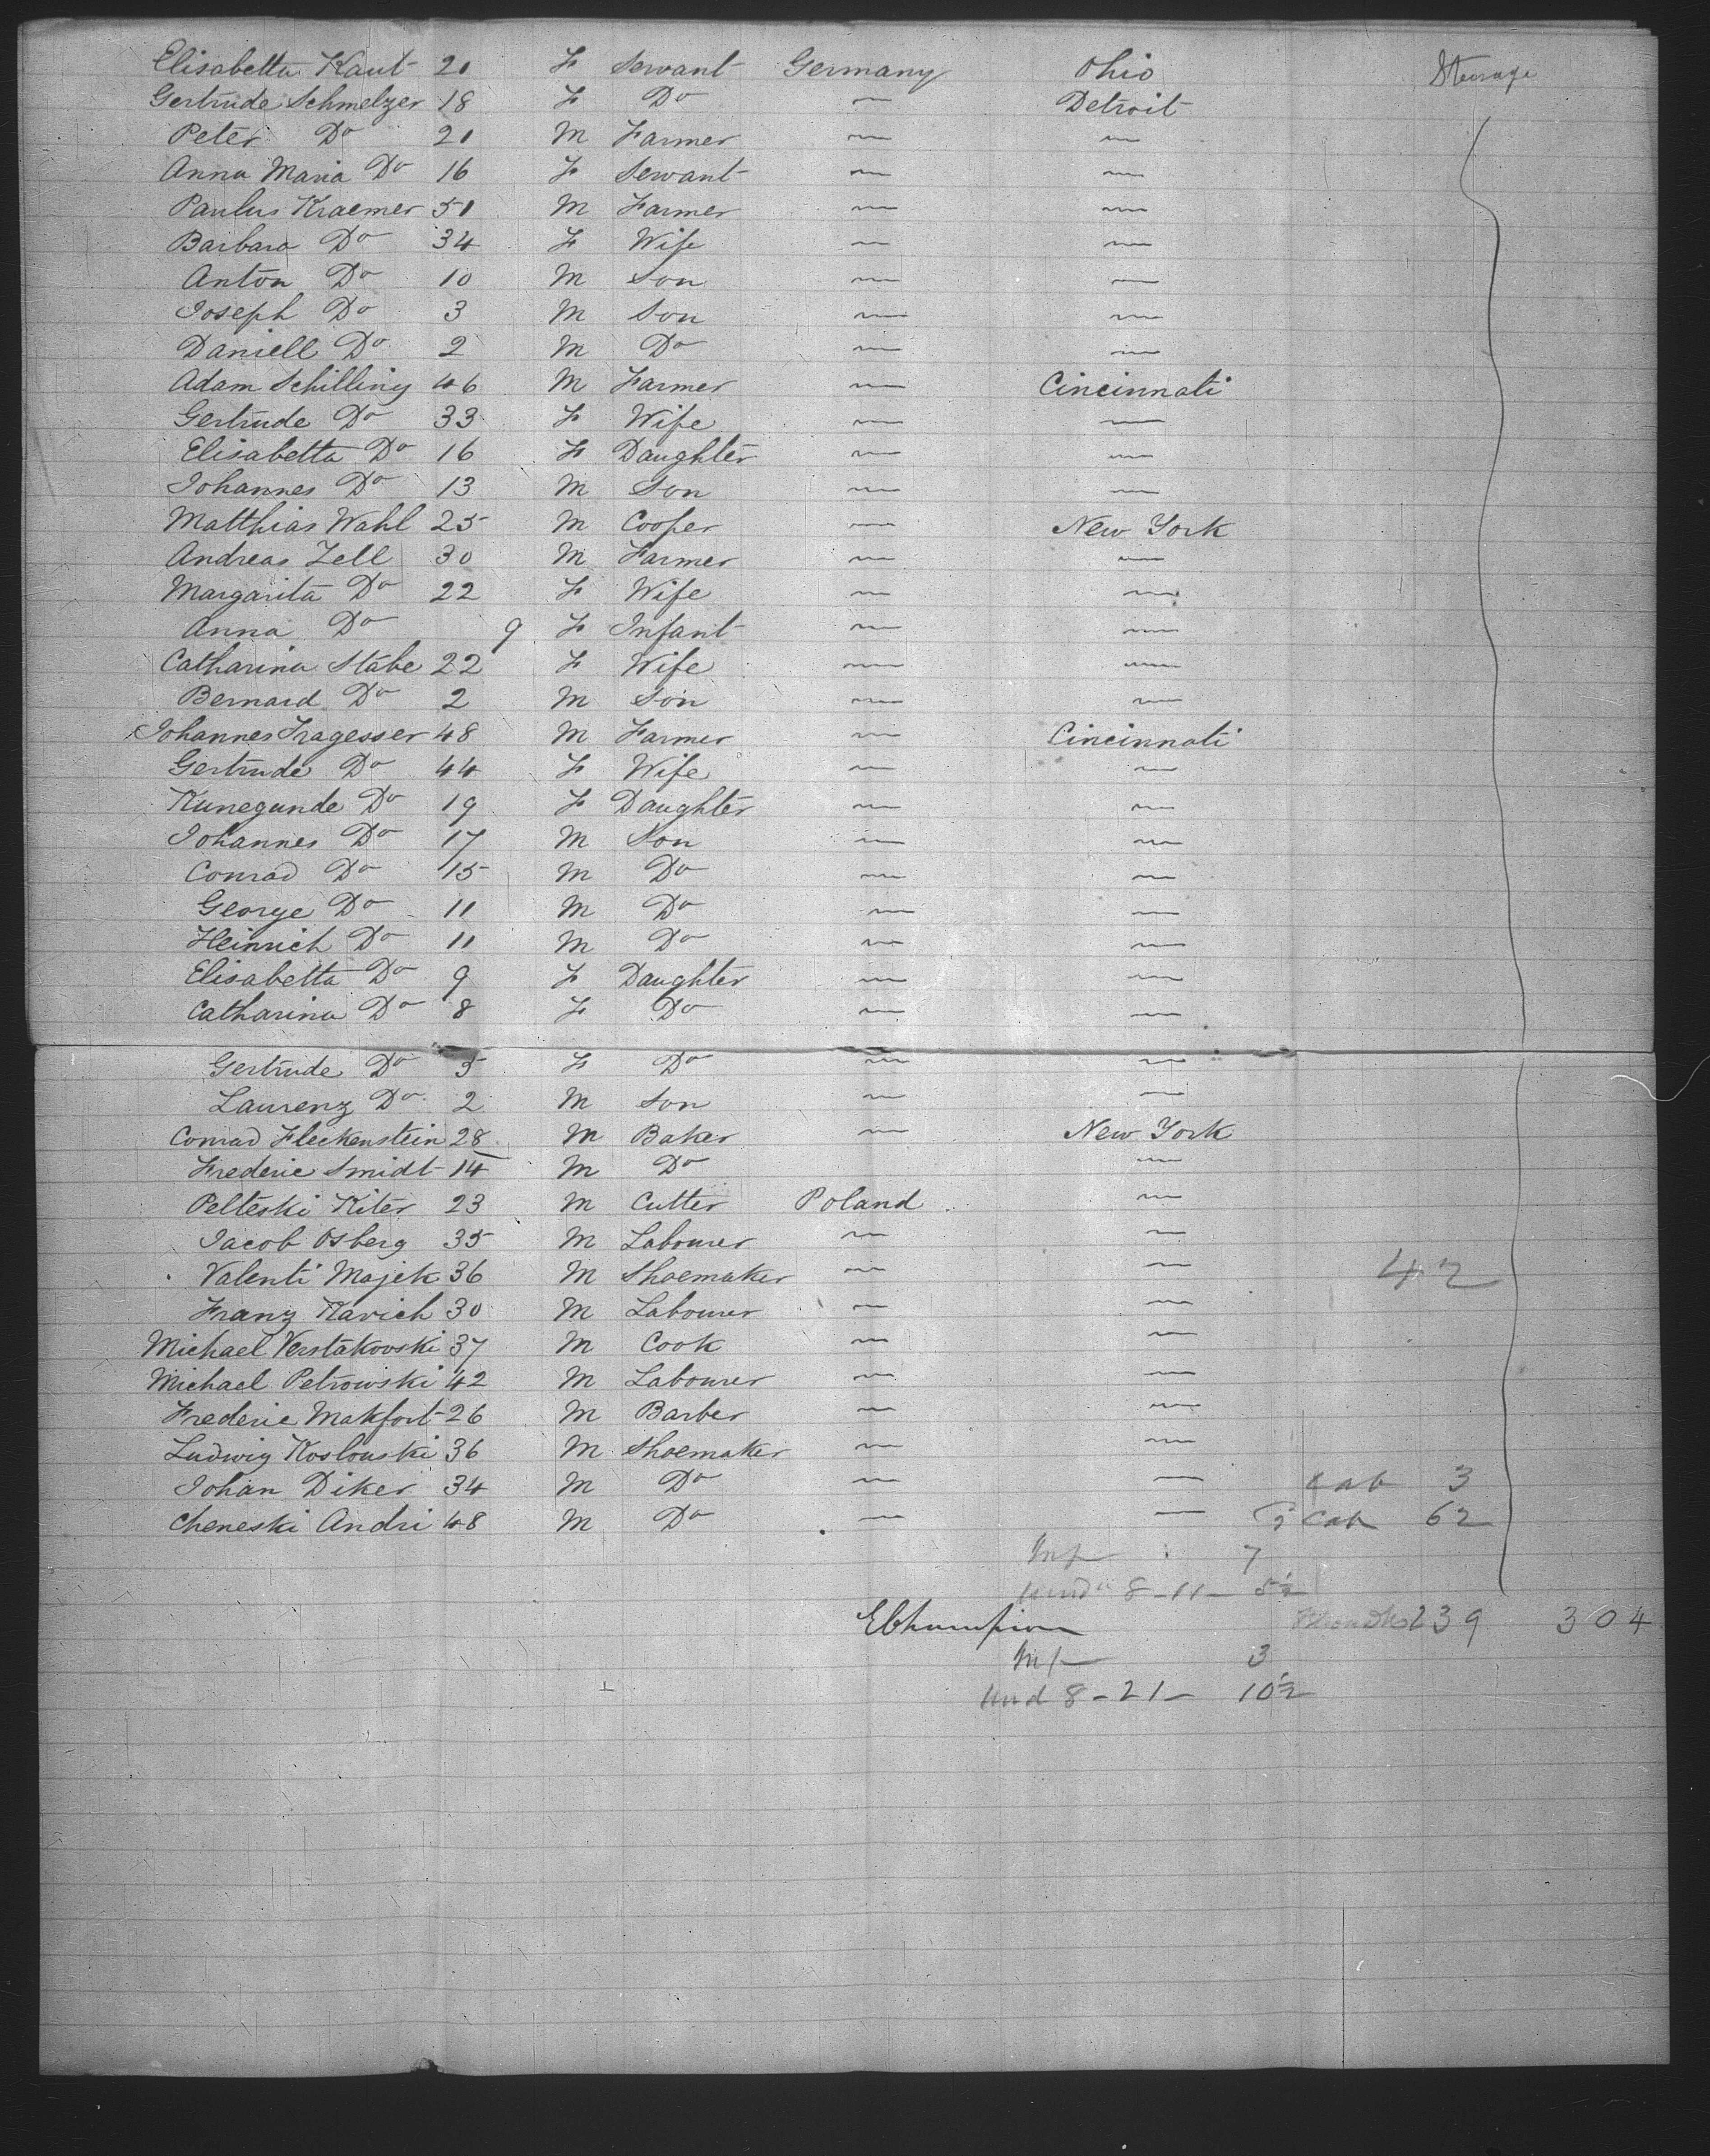 Elisabetta Kaut 21 F Servant Germany Ohio Steerage
Gertrude Schmelzer 18 F Do — Detroit
Peter Do 21 M Farmer — —
Anna Maria Do 16 F Servant — —
Paulus Kraemer 51 M Farmer — —
Barbara Do 34 F Wife — —
Anton Do 10 M Son — —
Joseph Do 3 M Son — —
Daniell Do 2 M Do — —
Adam Schilling 46 M Farmer — Cincinnati
Gertrude Do 33 F Wife — —
Elisabetta Do 16 F Daughter — —
Johannes Do 13 M Son — —
Matthias Wahl 25 M Cooper — New York
Andreas Zell 30 M Farmer — —
Margarita Do 22 F Wife — —
Anna Do 9 F Infant — —
Catharina Stabe 22 F Wife — —
Bernard Do 2 M Son — —
Johannes Fragesser 48 M Farmer — Cincinnati
Gertrude Do 44 F Wife — —
Kunegunde Do 19 F Daughter — —
Johannes Do 17 M Son — —
Conrad Do 15 M Do — —
George Do 11 M Do — —
Heinrich Do 11 M Do — —
Elisabetta Do 9 F Daughter — —
Catharina Do 8 F Do — —
Gertrude Do 5 F Do — —
Laurenz Do 2 M Son — —
Conrad Fleckenstein 28 M Baker — New York
Frederic Smidt 14 M Do —
Pelteski Kiter 23 M Cutter Poland —
Jacob Osberg 35 M Labourer — —
Valenti Majek 36 M Shoemaker — — 42
Franz Karich 30 M Labourer — —
Michael Verstakovski 37 M Cook — —
Michael Petrowski 42 M Labourer — —
Frederic Makfort 26 M Barber — —
Ludwig Koslouski 36 M Shoemaker — —
Johan Diker 34 M Do — — Cab 3
Cheneski Andri 48 M Do — — Cab 62
Inf 7
Und 8 - 11 - 5½
239 304
Inf 3
Und 8 - 21 - 10½